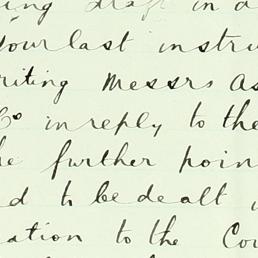 ing draft in a
your last instru
riting Messrs As
Co in reply to the
he further poin
d to be dealt
ation to the Cou